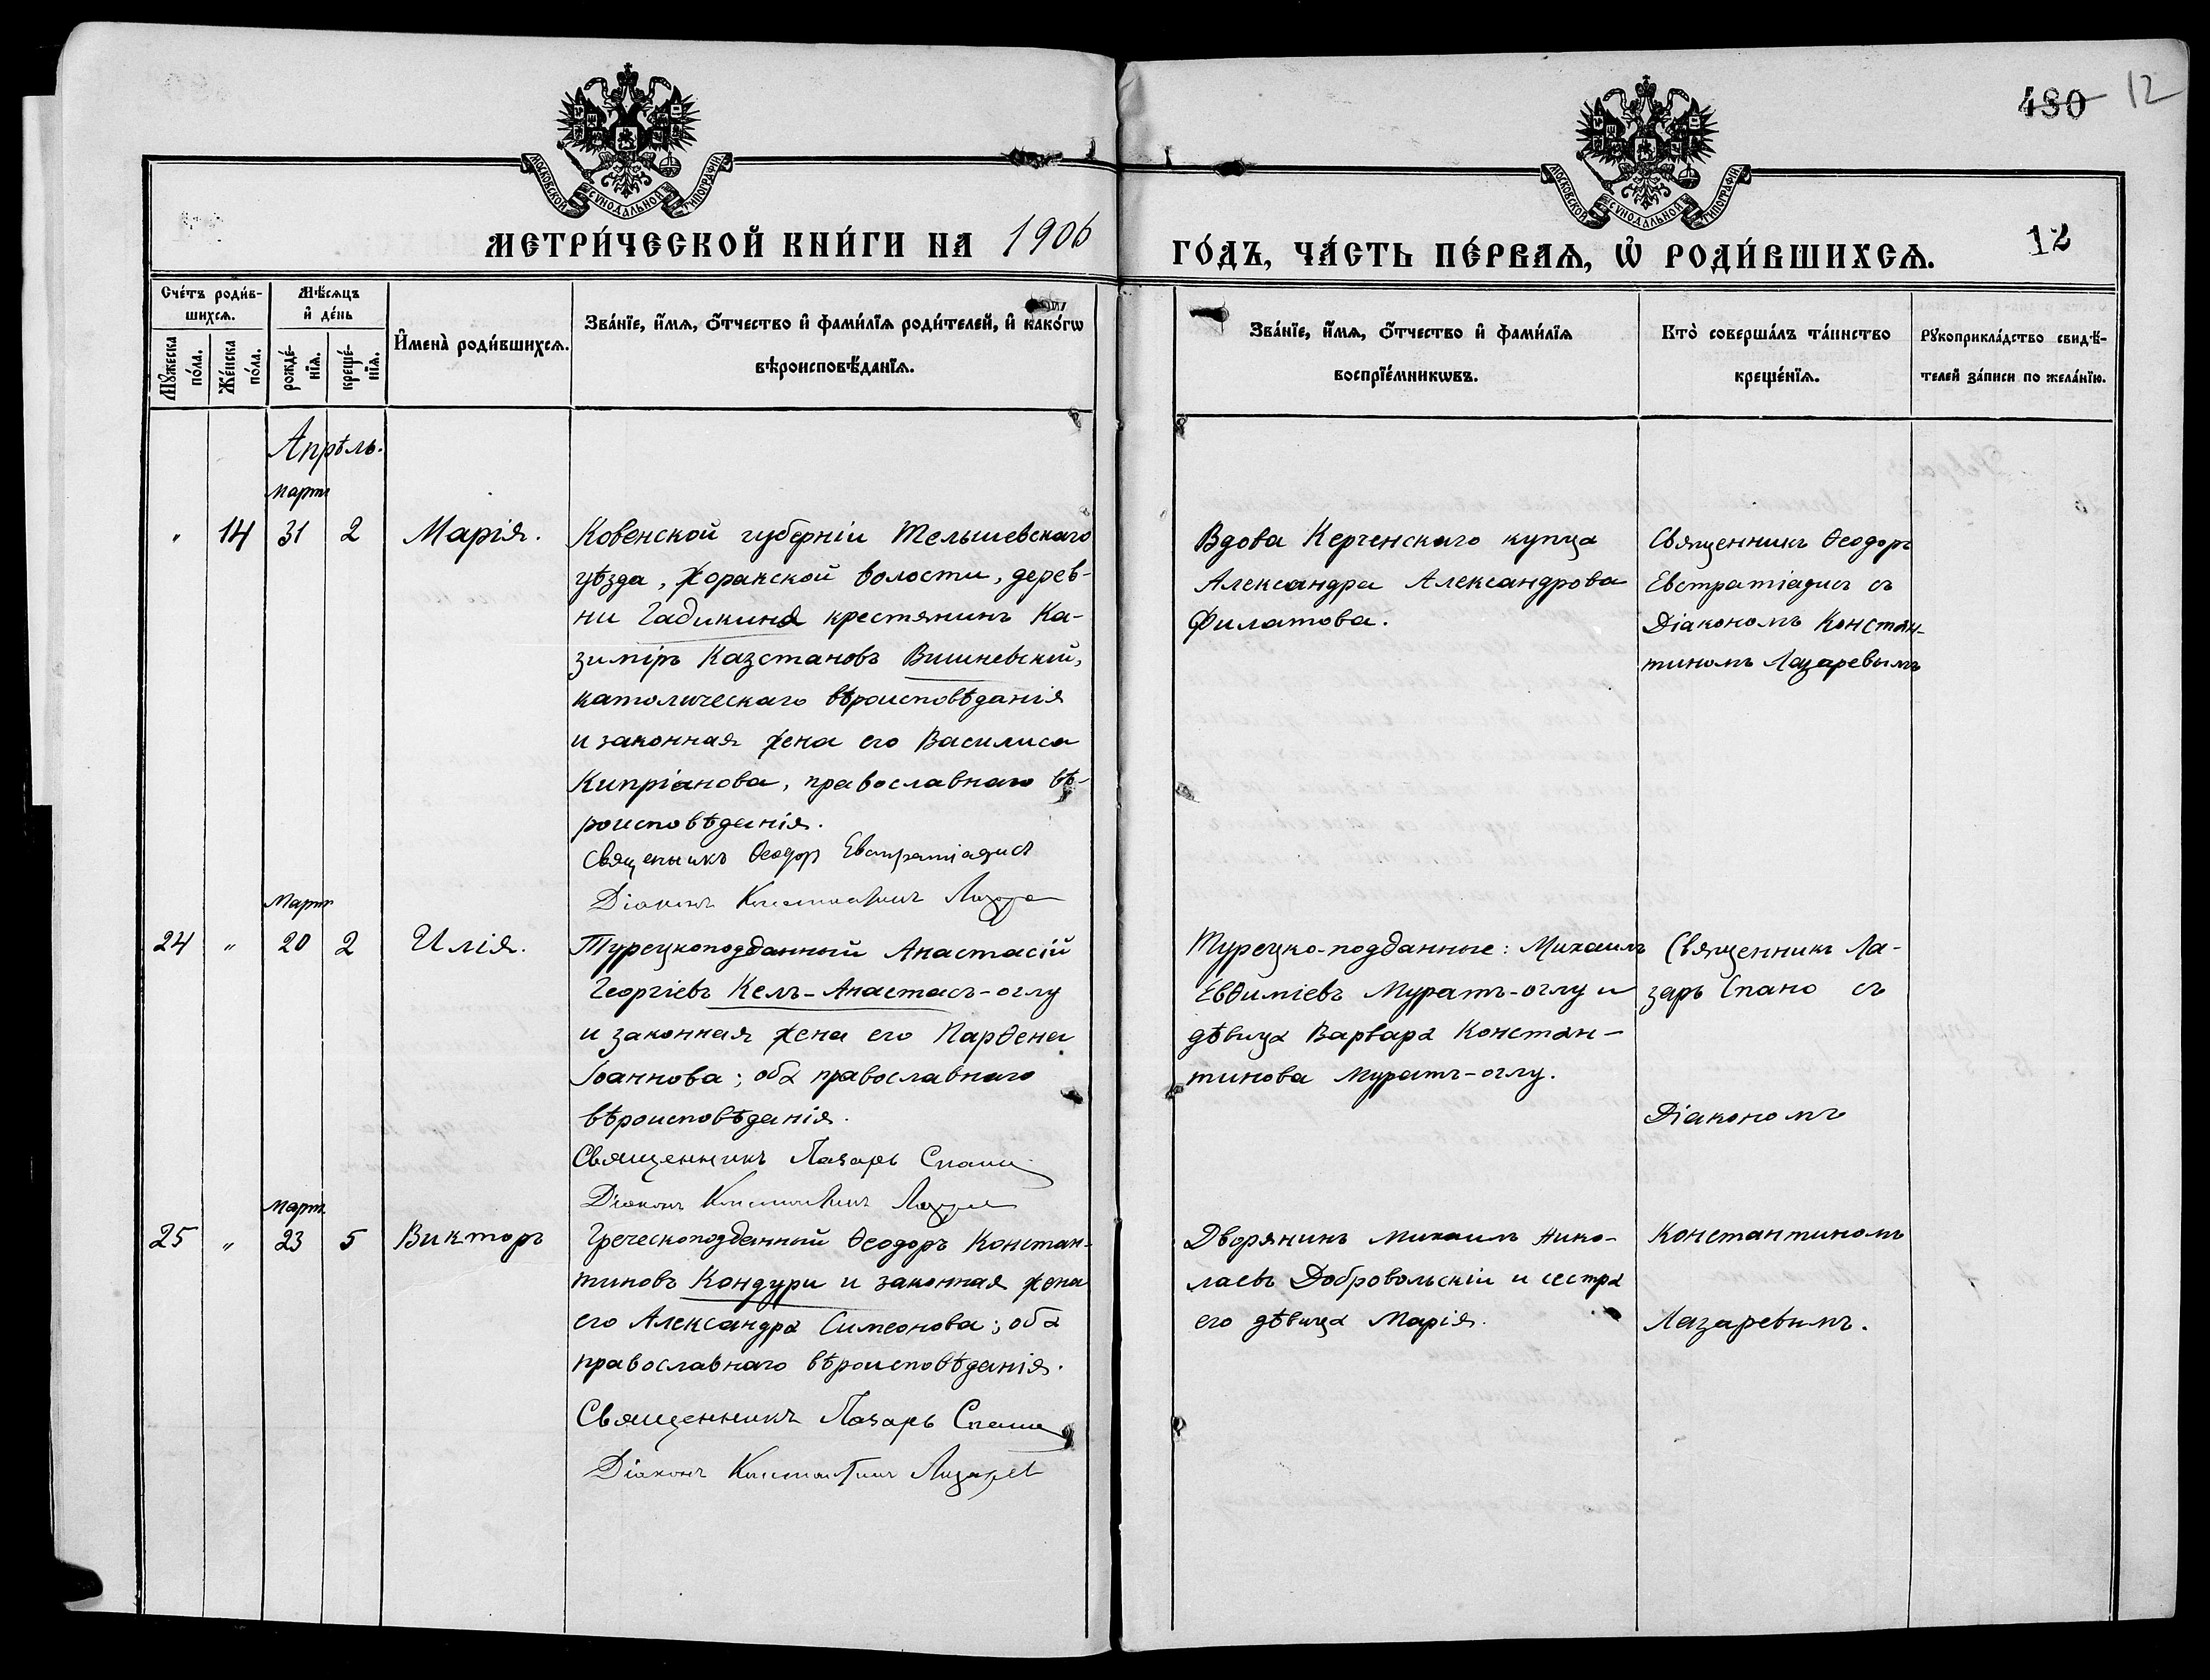 480 12
МОСКОВСКОЙ СѴНОДАЛЬНОЙ ТИПОГРАФІИ
МОСКОВСКОЙ СѴНОДАЛЬНОЙ ТИПОГРАФІИ
МЕТРИ́ЧЕСКОЙ КНИ́ГИ НА 1906
ГО́ДЪ, ЧА́СТЬ ПЕ́РВАѦ, Ѡ҆ РОДИ́ВШИХСѦ.
12
Сче́тъ роди́в-
шихсѧ.
Мѹ́жеска
по́ла.
Же́нска
по́ла.
Мѣ́сѧцъ
и҆ де́нь
рожде́-
нїѧ.
креще́-
нїѧ.
И҆мена̀ роди́вшихсѧ.
Зва́нїе, и҆́мѧ, ѻ҆́тчество и҆ фами́лїѧ роди́телей, и҆ како́гѡ
вѣроисповѣ́данїѧ.
Зва́нїе, и҆́мѧ, ѻ҆́тчество и҆ фами́лїѧ
воспрїе́мникѡвъ.
Кто̀ соверша́лъ та́инство
креще́нїѧ.
Рꙋкоприкла́дство свидѣ́-
телей за́писи по жела́нїю.
Апрѣль.
Март
" 14 31 2 Марія.
Ковенской губерніи Тельшевскаго
уѣзда, Жоранской волости, дерев-
ни Гадикина крестянинъ Ка-
зиміръ Казстановъ Вишневскій,
католическаго вѣроисповѣданія
и законная жена его Василиса
Кипріанова, православнаго вѣ-
роисповѣданія.
Священникъ Ѳеодоръ Евстратіадисъ
Діаконъ Константинъ
Вдова Керченскаго купца
Александра Александрова
Филатова.
Священникъ Ѳеодоръ
Евстратіадисъ съ
Діакономъ Констан-
тиномъ Лазаревымъ
Март
24 " 20 2 Илія.
Турецкоподданный Анастасій
Георгіевъ Келъ-Анастасъ-оглу
и законная жена его Парѳена
Іоаннова; оба православнаго
вѣроисповѣданія.
Священникъ Лазарь Спано
Діаконъ Константинъ
Турецко-подданные: Михаилъ
Евѳиміевъ Муратъ-оглу и
дѣвица Варвара Констан-
тинова Муратъ-оглу.
Священникъ Ла-
зарь Спано съ
Діакономъ
Март.
25 " 23 5 Викторъ
Греческоподданный Ѳеодоръ Констан-
тиновъ Кондури и законная жена
его Александра Симеонова; оба
православнаго вѣроисповѣданія.
Священникъ Лазарь Спано
Діаконъ Константинъ Лазарев
Дворянинъ Михаилъ Нико-
лаевъ Добровольскій и сестра
его дѣвица Марія.
Константиномъ
Лазаревымъ.